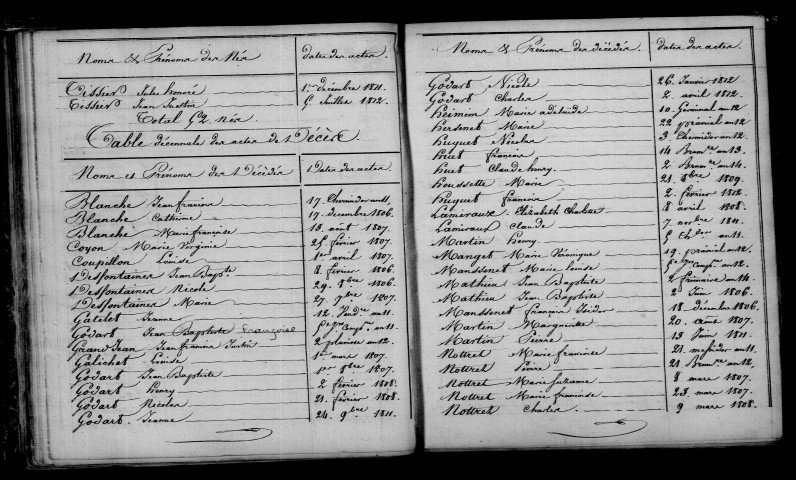 Noms et Prénoms des Nés dates des actes
Tissier Jules honoré 1er décembre 1811
Tissier Jean Justin Juillet 1812
Total 92 nés
Table décennale des actes de Décès
Noms et Prénoms des Décédés Dates des actes
Blanche Jean françois 17 thermidor an 11
Blanche Catherine 17 décembre 1806
Blanche Marie françoise 13 août 1807
Coyon Marie Virginie 25 février 1807
Coupillon Louise 1er avril 1807
Desfontaines Jean Bapte 8 février 1806
Desfontaines Nicole 29 8bre 1806
Desfontaines Marie 27 9bre 1807
Gatelet Jeanne 12 Vendre an 11
Godart Jean Baptiste Françoise an 11
Grand Jean Jean francois Justin 2 pluviose an 12
Galichet Louise 1er mars 1807
Godart Jean Baptiste 1er 8bre 1807
Godart henry 2 février 1808
Godart Nicolas 21 février 1808
Godart Jeanne 24 9bre 1811
Noms et Prénoms des décédés dates des actes
Godart Nicole 26 Janvier 1812
Godart Charles 2 avril 1812
Marie adelaïde 10 Germinal an 12
hersinet Marie 22 prairial an 12
huguet Nicolas 3 thermidor an 12
huet francois 14 Brumre an 13
huet Claude henry 2 Brumre an 14
houssette Marie 21 8bre 1809
huguet francois 2 février 1812
Lamiraux Elizabeth Charlotte 8 avril 1808
Lamiraux Claude 7 1811
Martin henry an 11
Manget Marie Véronique 19 prairial an 12
Manssenet Marie Louise an 12
Mathieu Jean Baptiste 2 frimaire an 14
Mathieu Jean Baptiste 2 Juin 1806
Manssenet françois Isidor 18 décembre 1806
Martin Marguerite 20 août 1807
Martin Pierre 13 Juin 1811
Nottret Marie francoise 21 messidor an 11
Nottret Pierre 21 Brumre an 12
Nottret Marie Suzanne 8 mars 1807
Nottret Marie francoise 23 mars 1807
Nottret Charles 9 mars 1808